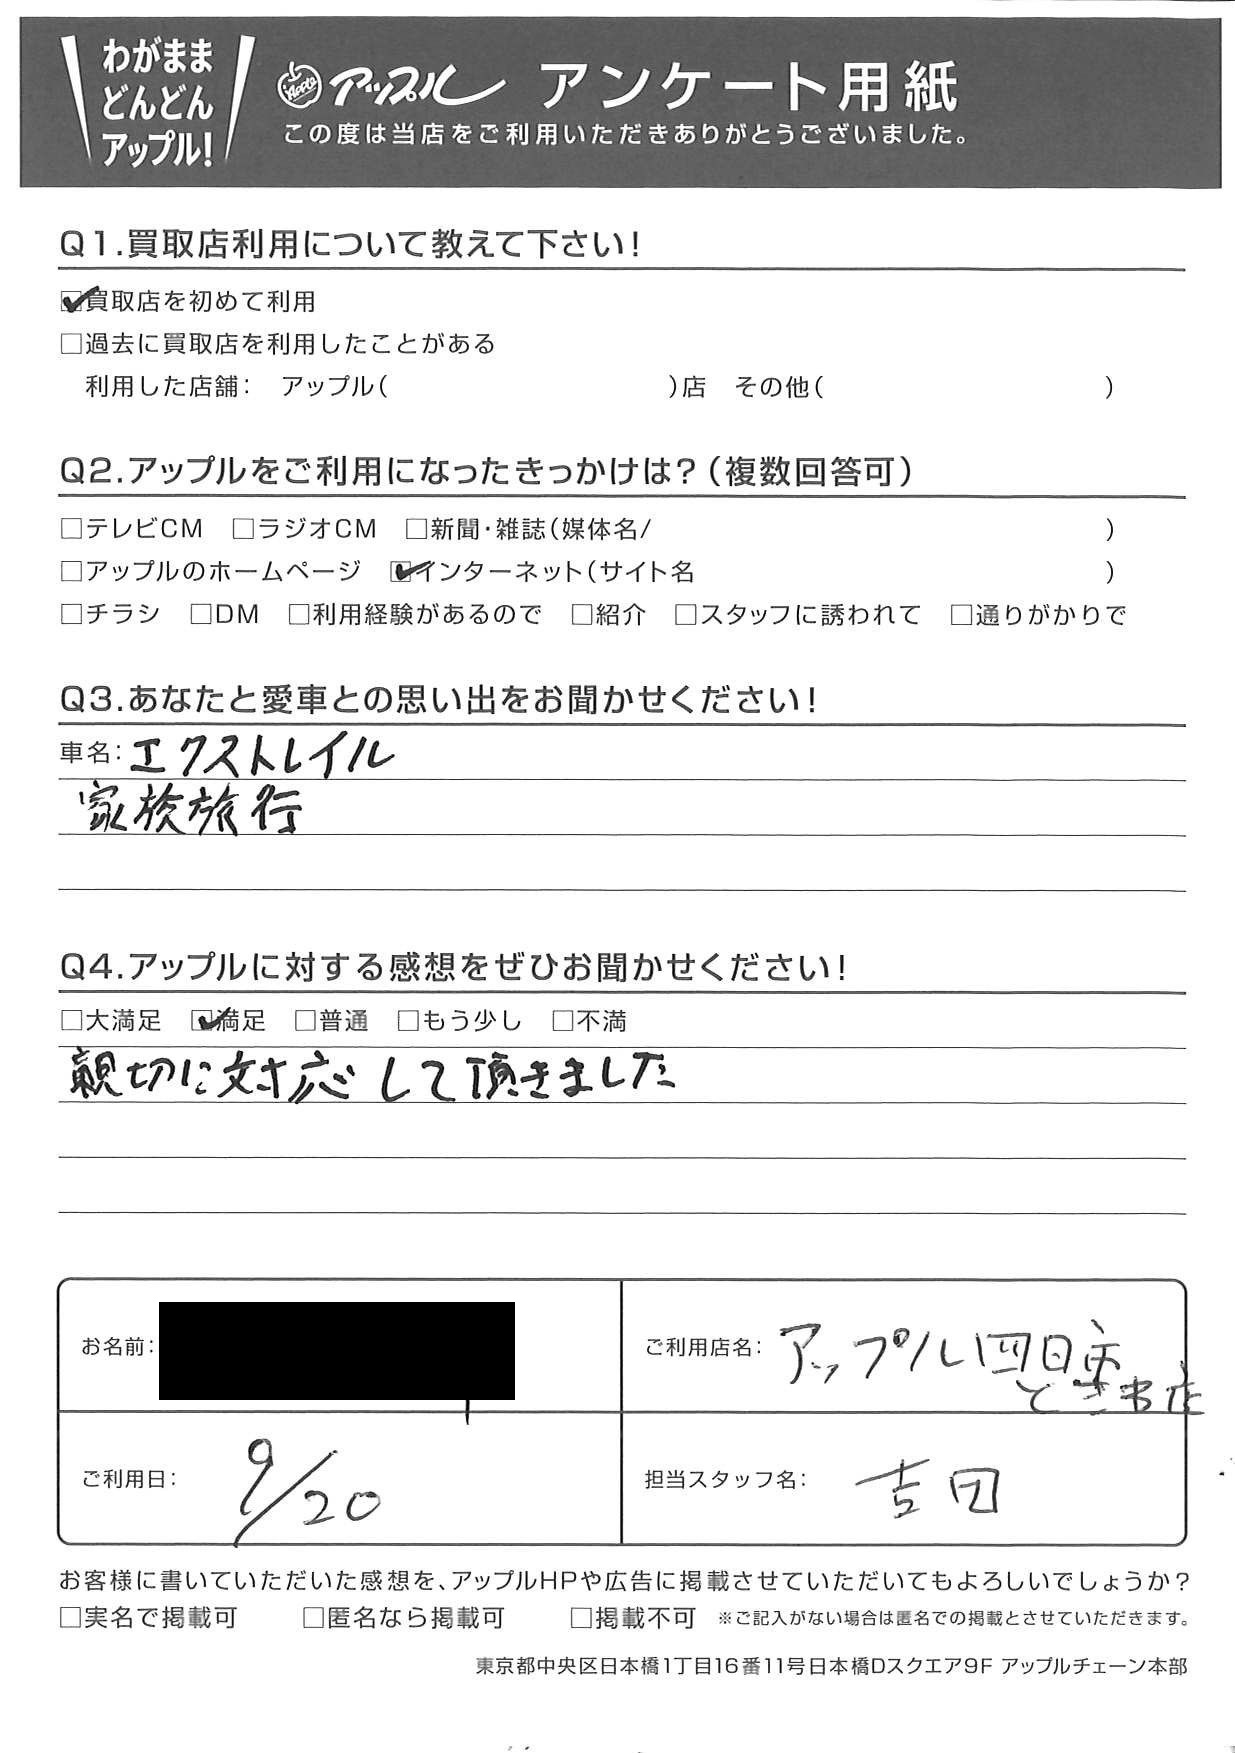 わがまま
どんどん
アップル!
Apple アップル アンケート用紙
この度は当店をご利用いただきありがとうございました。
Q1.買取店利用について教えて下さい!
☑買取店を初めて利用
□過去に買取店を利用したことがある
利用した店舗: アップル( )店 その他( )
Q2.アップルをご利用になったきっかけは?(複数回答可)
□テレビCM □ラジオCM □新聞・雑誌(媒体名/ )
□アップルのホームページ ☑インターネット(サイト名 )
□チラシ □DM □利用経験があるので □紹介 □スタッフに誘われて □通りがかりで
Q3.あなたと愛車との思い出をお聞かせください!
車名:エクストレイル
家族旅行
Q4.アップルに対する感想をぜひお聞かせください!
□大満足 ☑満足 □普通 □もう少し □不満
親切に対応して頂きました
お名前:
ご利用店名: アップル四日市
ときわ店
ご利用日: 9/20
担当スタッフ名: 吉田
お客様に書いていただいた感想を、アップルHPや広告に掲載させていただいてもよろしいでしょうか?
□実名で掲載可 □匿名なら掲載可 □掲載不可 ※ご記入がない場合は匿名での掲載とさせていただきます。
東京都中央区日本橋1丁目16番11号日本橋Dスクエア9F アップルチェーン本部